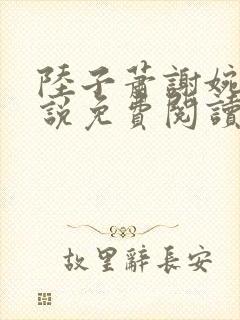 陸子蕭謝婉
說免費閱讀
故里辭長安